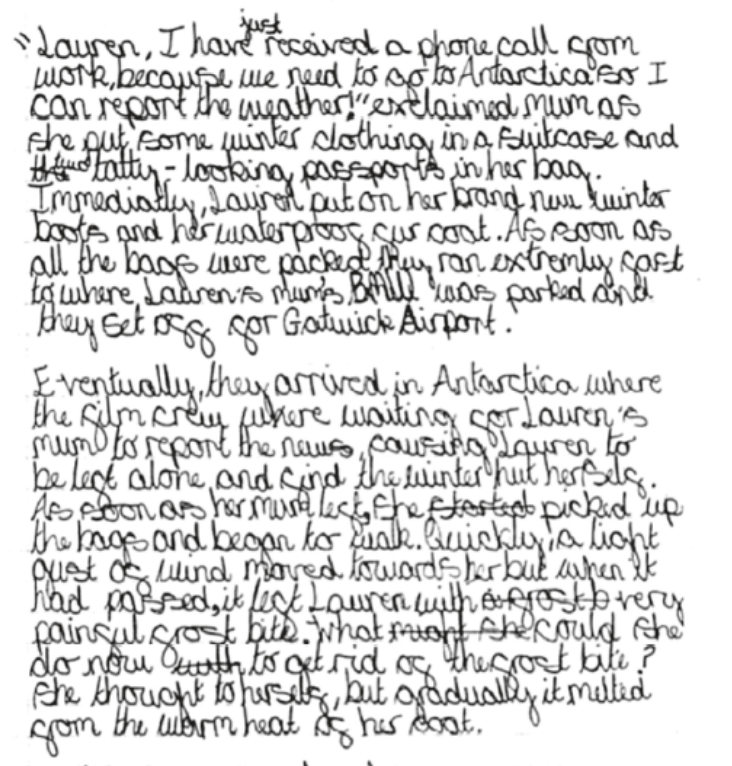 "Lauren, I have just received a phone call from
work, because we need to go to Antarctica so I
can report the weather!" exclaimed mum as
she put some winter clothing in a suitcase and
two tatty-looking passports in her bag.
Immediatly, Lauren put on her brand new winter
boots and her waterproof fur coat. As soon as
all the bags were packed they ran extremly fast
to where Lauren's mum's BMW was parked and
they set off for Gatwick Airport.
Eventually, they arrived in Antarctica where
the film crew where waiting for Lauren's
mum to report the news, causing Lauren to
be left alone and find the winter hut herself.
As soon as her mum left, she started picked up
the bags and began to walk. Quickly, a light
gust of wind moved towards her but when it
had passed, it left Lauren with a frost b very
painful frost bite. What might she could she
do now with to get rid of the frost bite?
She thought to herself, but gradually it melted
from the warm heat of her coat.